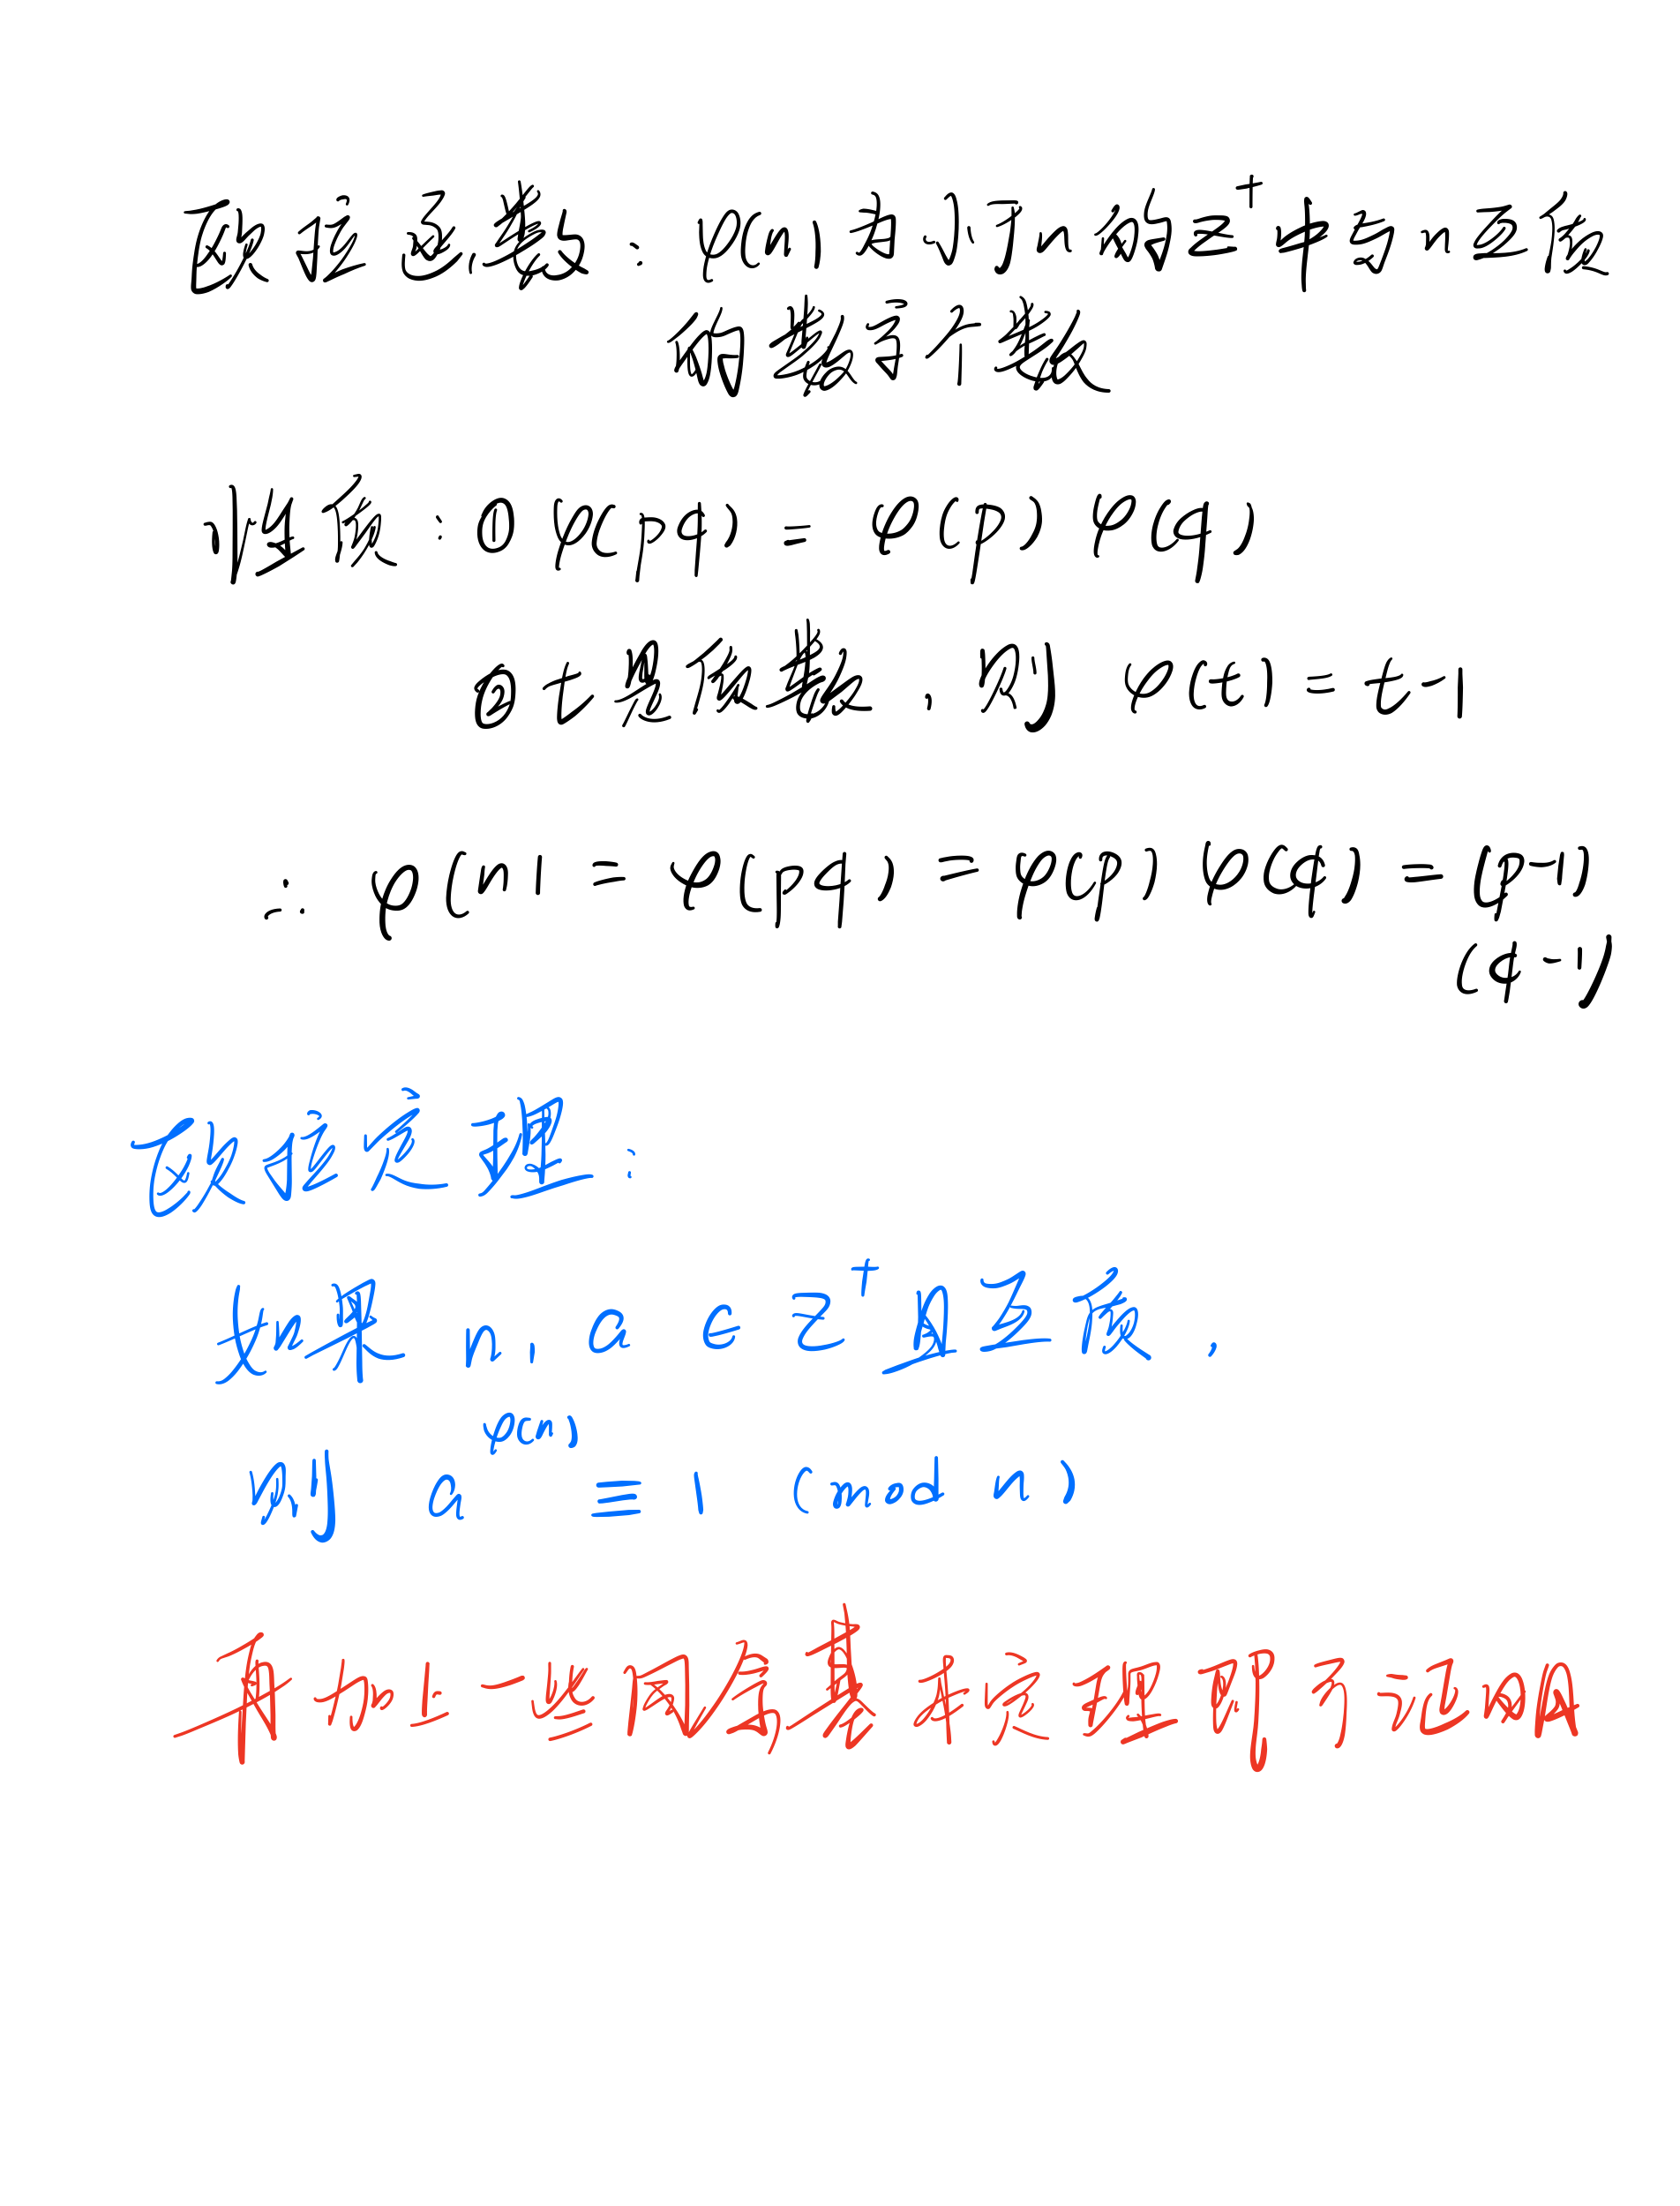 欧拉函数：φ(n)为小于n的Z⁺中与n互质
的数字个数
性质：① φ(pq) = φ(p) φ(q)
② t是质数，则 φ(t) = t-1
∴ φ(n) = φ(pq) = φ(p) φ(q) = (p-1)
(q-1)
欧拉定理：
如果 n, a ∈ Z⁺ 且互质，
则 a^φ(n) ≡ 1 (mod n)
再加上一些同余基本定理即可证明